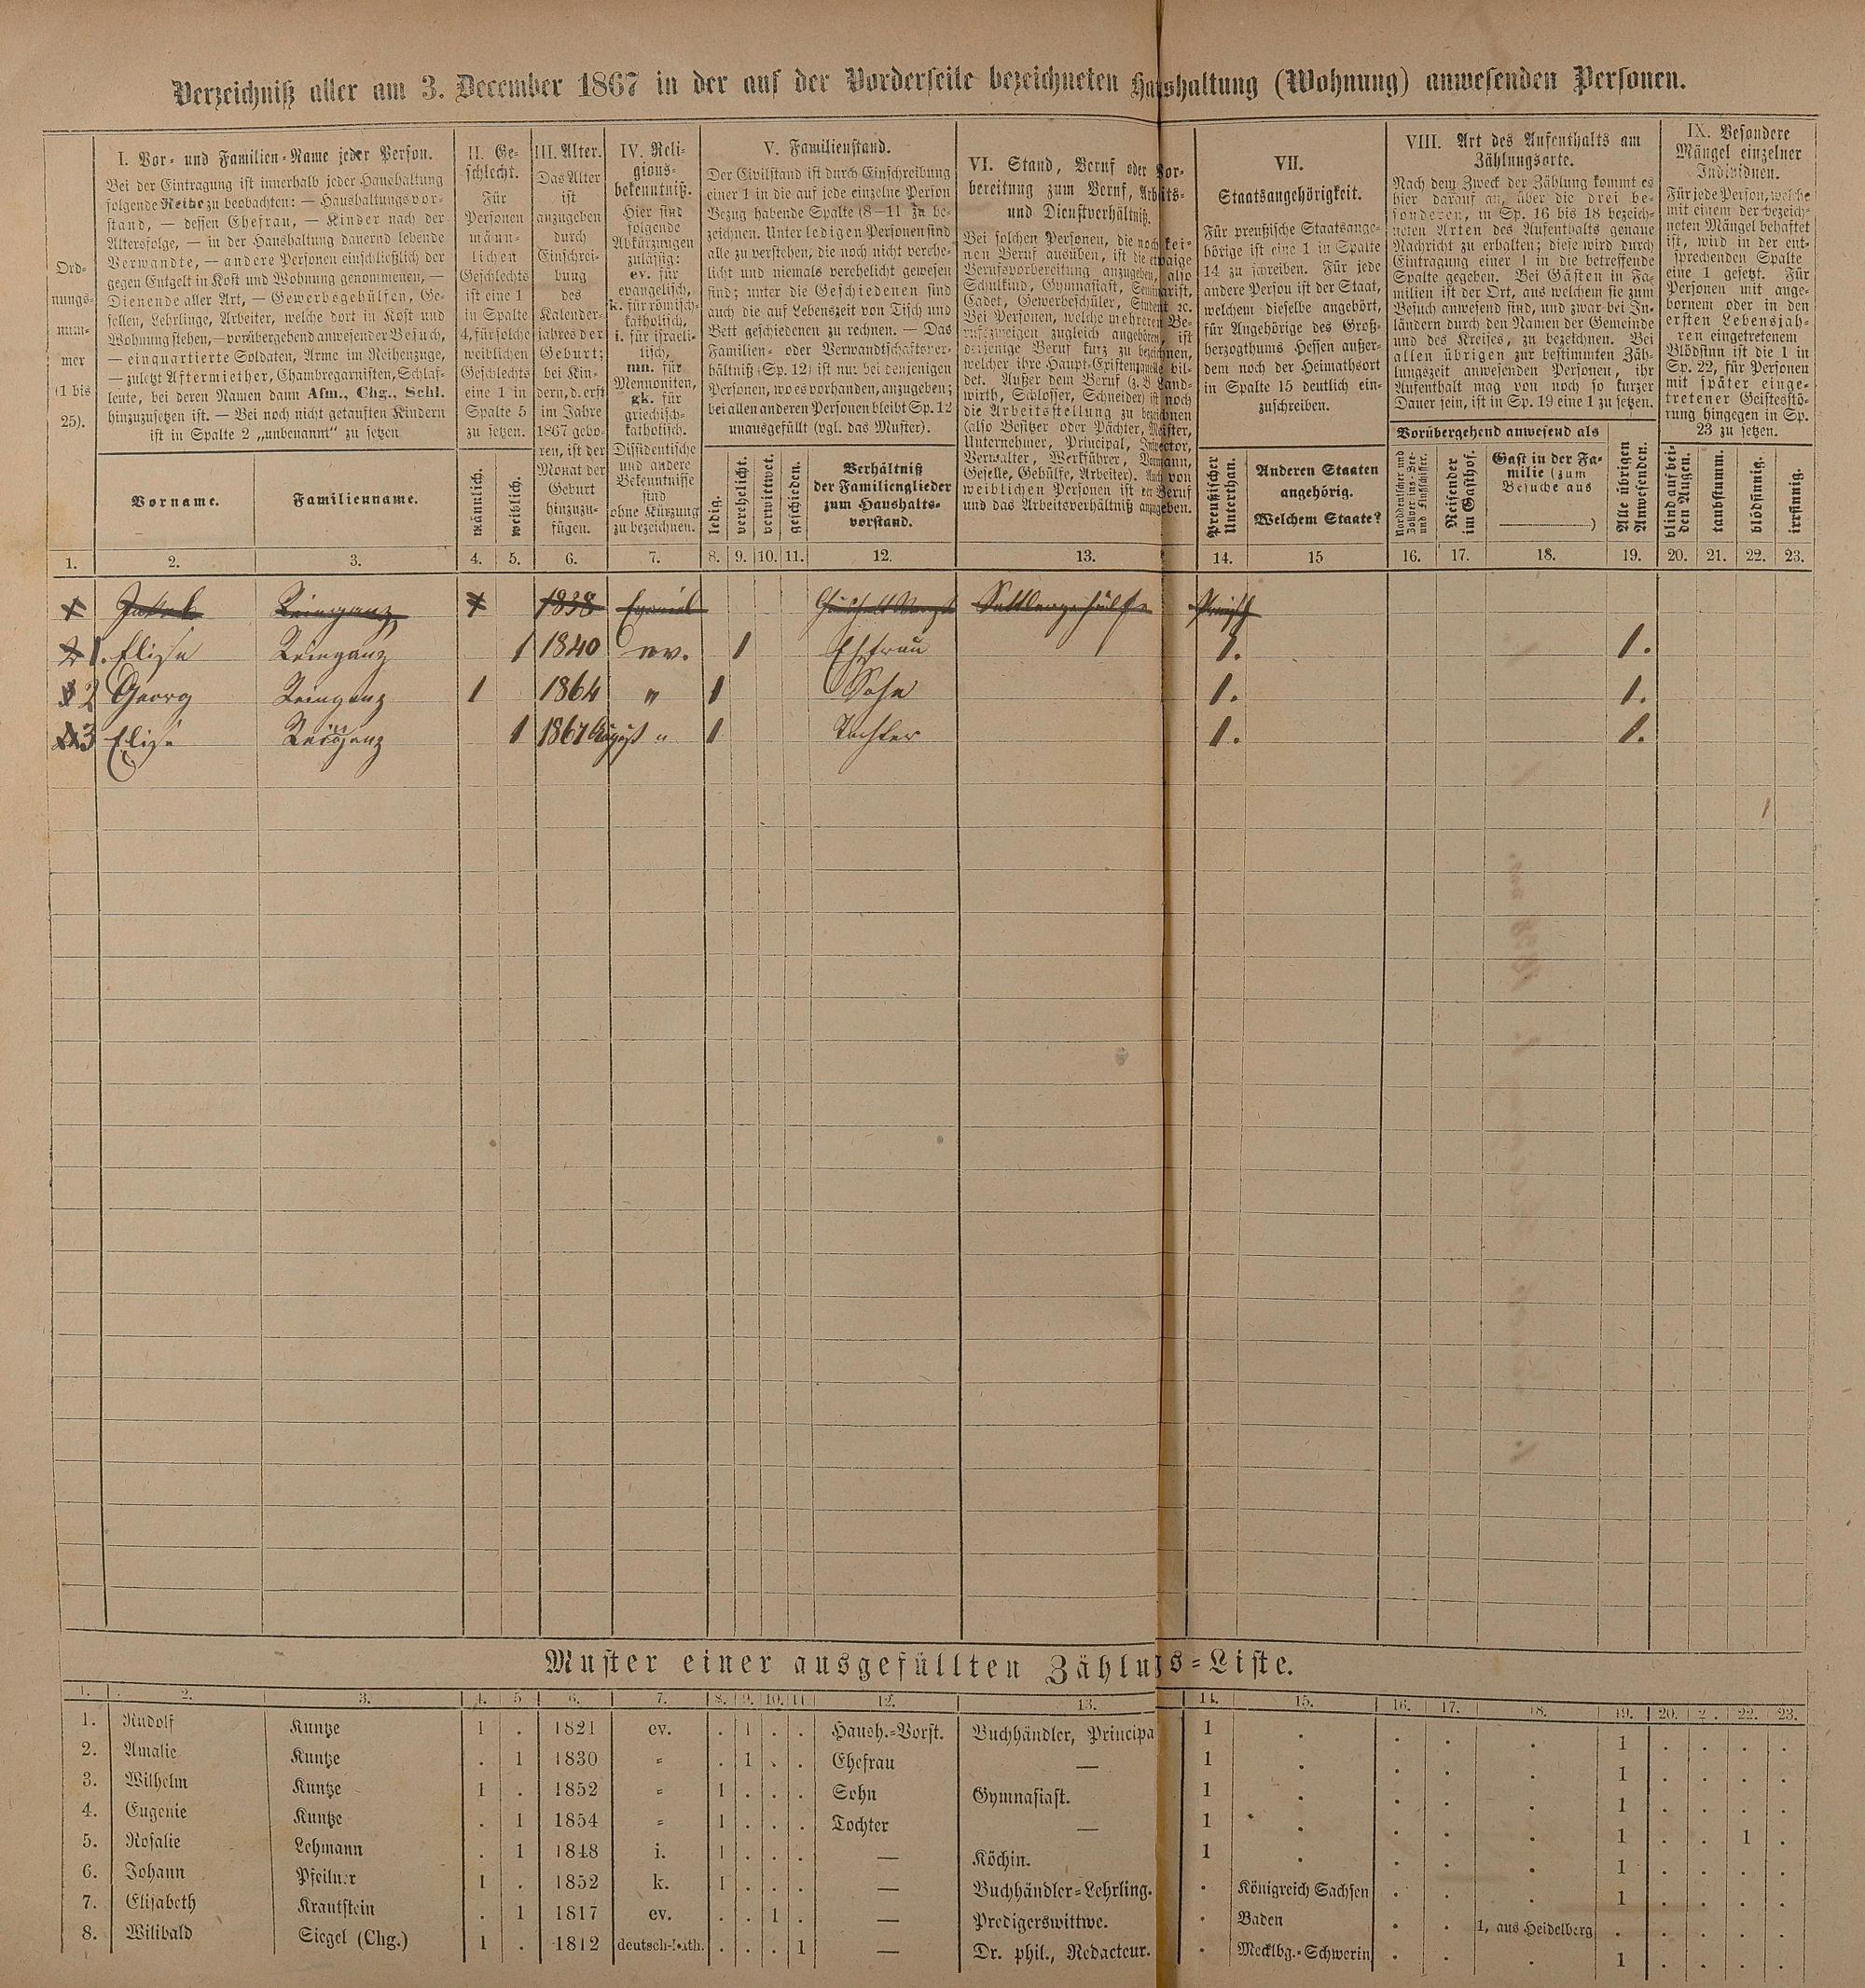 Verzeichniß aller am 3. December 1867 in der auf der Vorderseite bezeichneten Haushaltung (Wohnung) anwesenden Personen.
Ord-
nungs-
num-
mer
(1 bis
25).
I. Vor- und Familien-Name jeder Person.
Bei der Eintragung ist innerhalb jeder Haushaltung
folgende Reihe zu beobachten: — Haushaltungsvor-
stand, — dessen Ehefrau, — Kinder nach der
Altersfolge, — in der Haushaltung dauernd lebende
Verwandte, — andere Personen einschließlich der
gegen Entgelt in Kost und Wohnung genommenen, —
Dienende aller Art, — Gewerbegehülfen, Ge-
sellen, Lehrlinge, Arbeiter, welche dort in Kost und
Wohnung stehen, — vorübergehend anwesender Besuch,
— einquartierte Soldaten, Arme im Reihenzuge,
— zuletzt Aftermiether, Chambregarnisten, Schlaf-
leute, bei deren Namen dann Afm., Chg., Schl.
hinzuzusetzen ist. — Bei noch nicht getauften Kindern
ist in Spalte 2 „unbenannt" zu setzen
Vorname.
Familienname.
II. Ge-
schlecht.
Für
Personen
männ-
lichen
Geschlechts
ist eine 1
in Spalte
4, für solche
weiblichen
Geschlechts
eine 1 in
Spalte 5
zu setzen.
männlich.
weiblich.
III. Alter.
Das Alter
ist
anzugeben
durch
Einschrei-
bung
des
Kalender-
jahres der
Geburt;
bei Kin-
dern, d. erst
im Jahre
1867 gebo-
ren, ist der
Monat der
Geburt
hinzuzu-
fügen.
IV. Reli-
gions-
bekenntniß.
Hier sind
folgende
Abkürzungen
zulässig:
ev. für
evangelisch,
k. für römisch-
katholisch,
i. für israeli-
tisch,
mn. für
Mennoniten,
gk. für
griechisch-
katholisch.
Dissidentische
und andere
Bekenntnisse
sind
ohne Kürzung
zu bezeichnen.
V. Familienstand.
Der Civilstand ist durch Einschreibung
einer 1 in die auf jede einzelne Person
Bezug habende Spalte (8—11 zu be-
zeichnen. Unter ledigen Personen sind
alle zu verstehen, die noch nicht verehe-
licht und niemals verehelicht gewesen
sind; unter die Geschiedenen sind
auch die auf Lebenszeit von Tisch und
Bett geschiedenen zu rechnen. — Das
Familien- oder Verwandtschaftsver-
hältniß (Sp. 12) ist nur bei denjenigen
Personen, wo es vorhanden, anzugeben;
bei allen anderen Personen bleibt Sp. 12
unausgefüllt (vgl. das Muster).
ledig.
verehelicht.
verwittwet.
geschieden.
Verhältniß
der Familienglieder
zum Haushalts-
vorstand.
VI. Stand, Beruf oder Vor-
bereitung zum Beruf, Arbeits-
und Dienstverhältniß.
Bei solchen Personen, die noch kei-
nen Beruf ausüben, ist die etwaige
Berufsvorbereitung anzugeben, also
Schulkind, Gymnasiast, Seminarist,
Cadet, Gewerbeschüler, Student ec.
Bei Personen, welche mehreren Be-
rufszweigen zugleich angehören, ist
derjenige Beruf kurz zu bezeichnen,
welcher ihre Haupt-Existenzquelle bil-
det. Außer dem Beruf (z. B. Land-
wirth, Schlosser, Schneider) ist noch
die Arbeitsstellung zu bezeichnen
(also Besitzer oder Pächter, Meister,
Unternehmer, Principal, Inspector,
Verwalter, Werkführer, Vormann,
Geselle, Gehülfe, Arbeiter). Auch von
weiblichen Personen ist der Beruf
und das Arbeitsverhältniß anzugeben.
VII.
Staatsangehörigkeit.
Für preußische Staatsange-
hörige ist eine 1 in Spalte
14 zu schreiben. Für jede
andere Person ist der Staat,
welchem dieselbe angehört,
für Angehörige des Groß-
herzogthums Hessen außer-
dem noch der Heimathsort
in Spalte 15 deutlich ein-
zuschreiben.
Preußischer
Unterthan.
Anderen Staaten
angehörig.
Welchem Staate?
VIII. Art des Aufenthalts am
Zählungsorte.
Nach dem Zweck der Zählung kommt es
hier darauf an, über die drei be-
sonderen, in Sp. 16 bis 18 bezeich-
neten Arten des Aufenthalts genaue
Nachricht zu erhalten; diese wird durch
Eintragung einer 1 in die betreffende
Spalte gegeben. Bei Gästen in Fa-
milien ist der Ort, aus welchem sie zum
Besuch anwesend sind, und zwar bei In-
ländern durch den Namen der Gemeinde
und des Kreises, zu bezeichnen. Bei
allen übrigen zur bestimmten Zäh-
lungszeit anwesenden Personen, ihr
Aufenthalt mag von noch so kurzer
Dauer sein, ist in Sp. 19 eine 1 zu setzen.
Vorübergehend anwesend als
Norddeutscher und
Zollver ins-See-
und Flußschiffer.
Reisender
im Gasthof.
Gast in der Fa-
milie (zum
Besuche aus
)
Alle übrigen
Anwesenden.
IX. Besondere
Mängel einzelner
Individuen.
Für jede Person, welche
mit einem der bezeich-
neten Mängel behaftet
ist, wird in der ent-
sprechenden Spalte
eine 1 gesetzt. Für
Personen mit ange-
bornem oder in den
ersten Lebensjah-
ren eingetretenem
Blödsinn ist die 1 in
Sp. 22, für Personen
mit später einge-
tretener Geistesstö-
rung hingegen in Sp.
23 zu setzen.
blind auf bei-
den Augen.
taubstumm.
blödsinnig.
irrsinnig.
1. 2. 3. 4. 5. 6. 7. 8. 9. 10. 11. 12. 13. 14. 15 16. 17. 18. 19. 20. 21. 22. 23.
Jakob Reinganz 1838 Sattlergehülfe
1. Elise Reinganz 1 1840 ev. 1 Ehefrau 1. 1.
2 Georg Reinganz 1 1864 " 1 Sohn 1. 1.
3 Elise Reinganz 1 1867 August " 1 Tochter 1. 1.
Muster einer ausgefüllten Zählungs-Liste.
1. 2. 3. 4. 5 6. 7. 8. 9. 10. 11. 12. 13. 14. 15. 16. 17. 18. 19. 20. 2 . 22. 23.
1. Rudolf Kuntze 1 . 1821 ev. . 1 . . Haush.-Vorst. Buchhändler, Principa 1 . . . . 1 . . . .
2. Amalie Kuntze . 1 1830 " . 1 . . Ehefrau — 1 . . . . 1 . . . .
3. Wilhelm Kuntze 1 . 1852 " 1 . . . Sohn Gymnasiast. 1 . . . . 1 . . . .
4. Eugenie Kuntze . 1 1854 " 1 . . . Tochter — 1 . . . . 1 . . 1 .
5. Rosalie Lehmann . 1 1848 i. 1 . . . — Köchin. 1 . . . . 1 . . . .
6. Johann Pfeilner 1 . 1852 k. 1 . . . — Buchhändler-Lehrling. . Königreich Sachsen . . . 1 . . . .
7. Elisabeth Krautstein . 1 1817 ev. . . 1 . — Predigerswittwe. . Baden . . 1, aus Heidelberg . . . . .
8. Wilibald Siegel (Chg.) 1 . 1812 deutsch-kath. . . . 1 — Dr. phil., Redacteur. . Mecklbg.-Schwerin . . . 1 . . . .